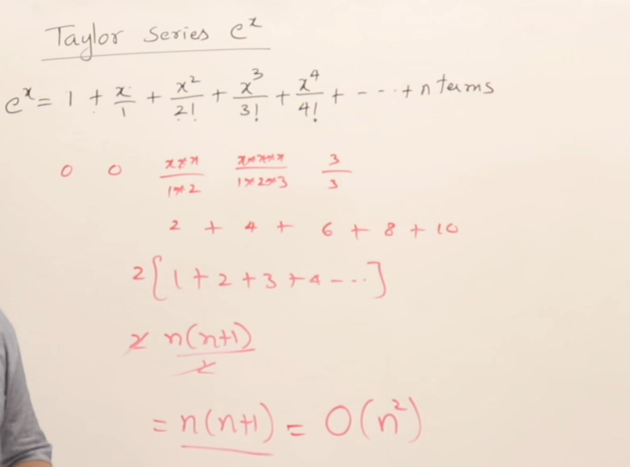 Taylor Series eˣ
eˣ = 1 + x/1 + x²/2! + x³/3! + x⁴/4! + - - - + n terms
0 0 x×x/1×2 x×x×x/1×2×3 3/3
2 + 4 + 6 + 8 + 10
2[1 + 2 + 3 + 4 - - -]
2 n(n+1)/2
= n(n+1) = O(n²)